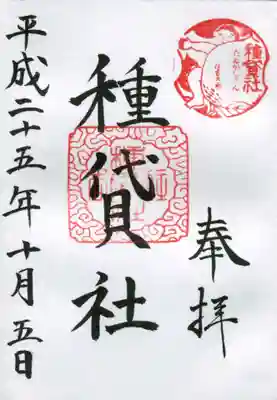 種貸社
奉拝
種貸社
平成二十五年十月五日